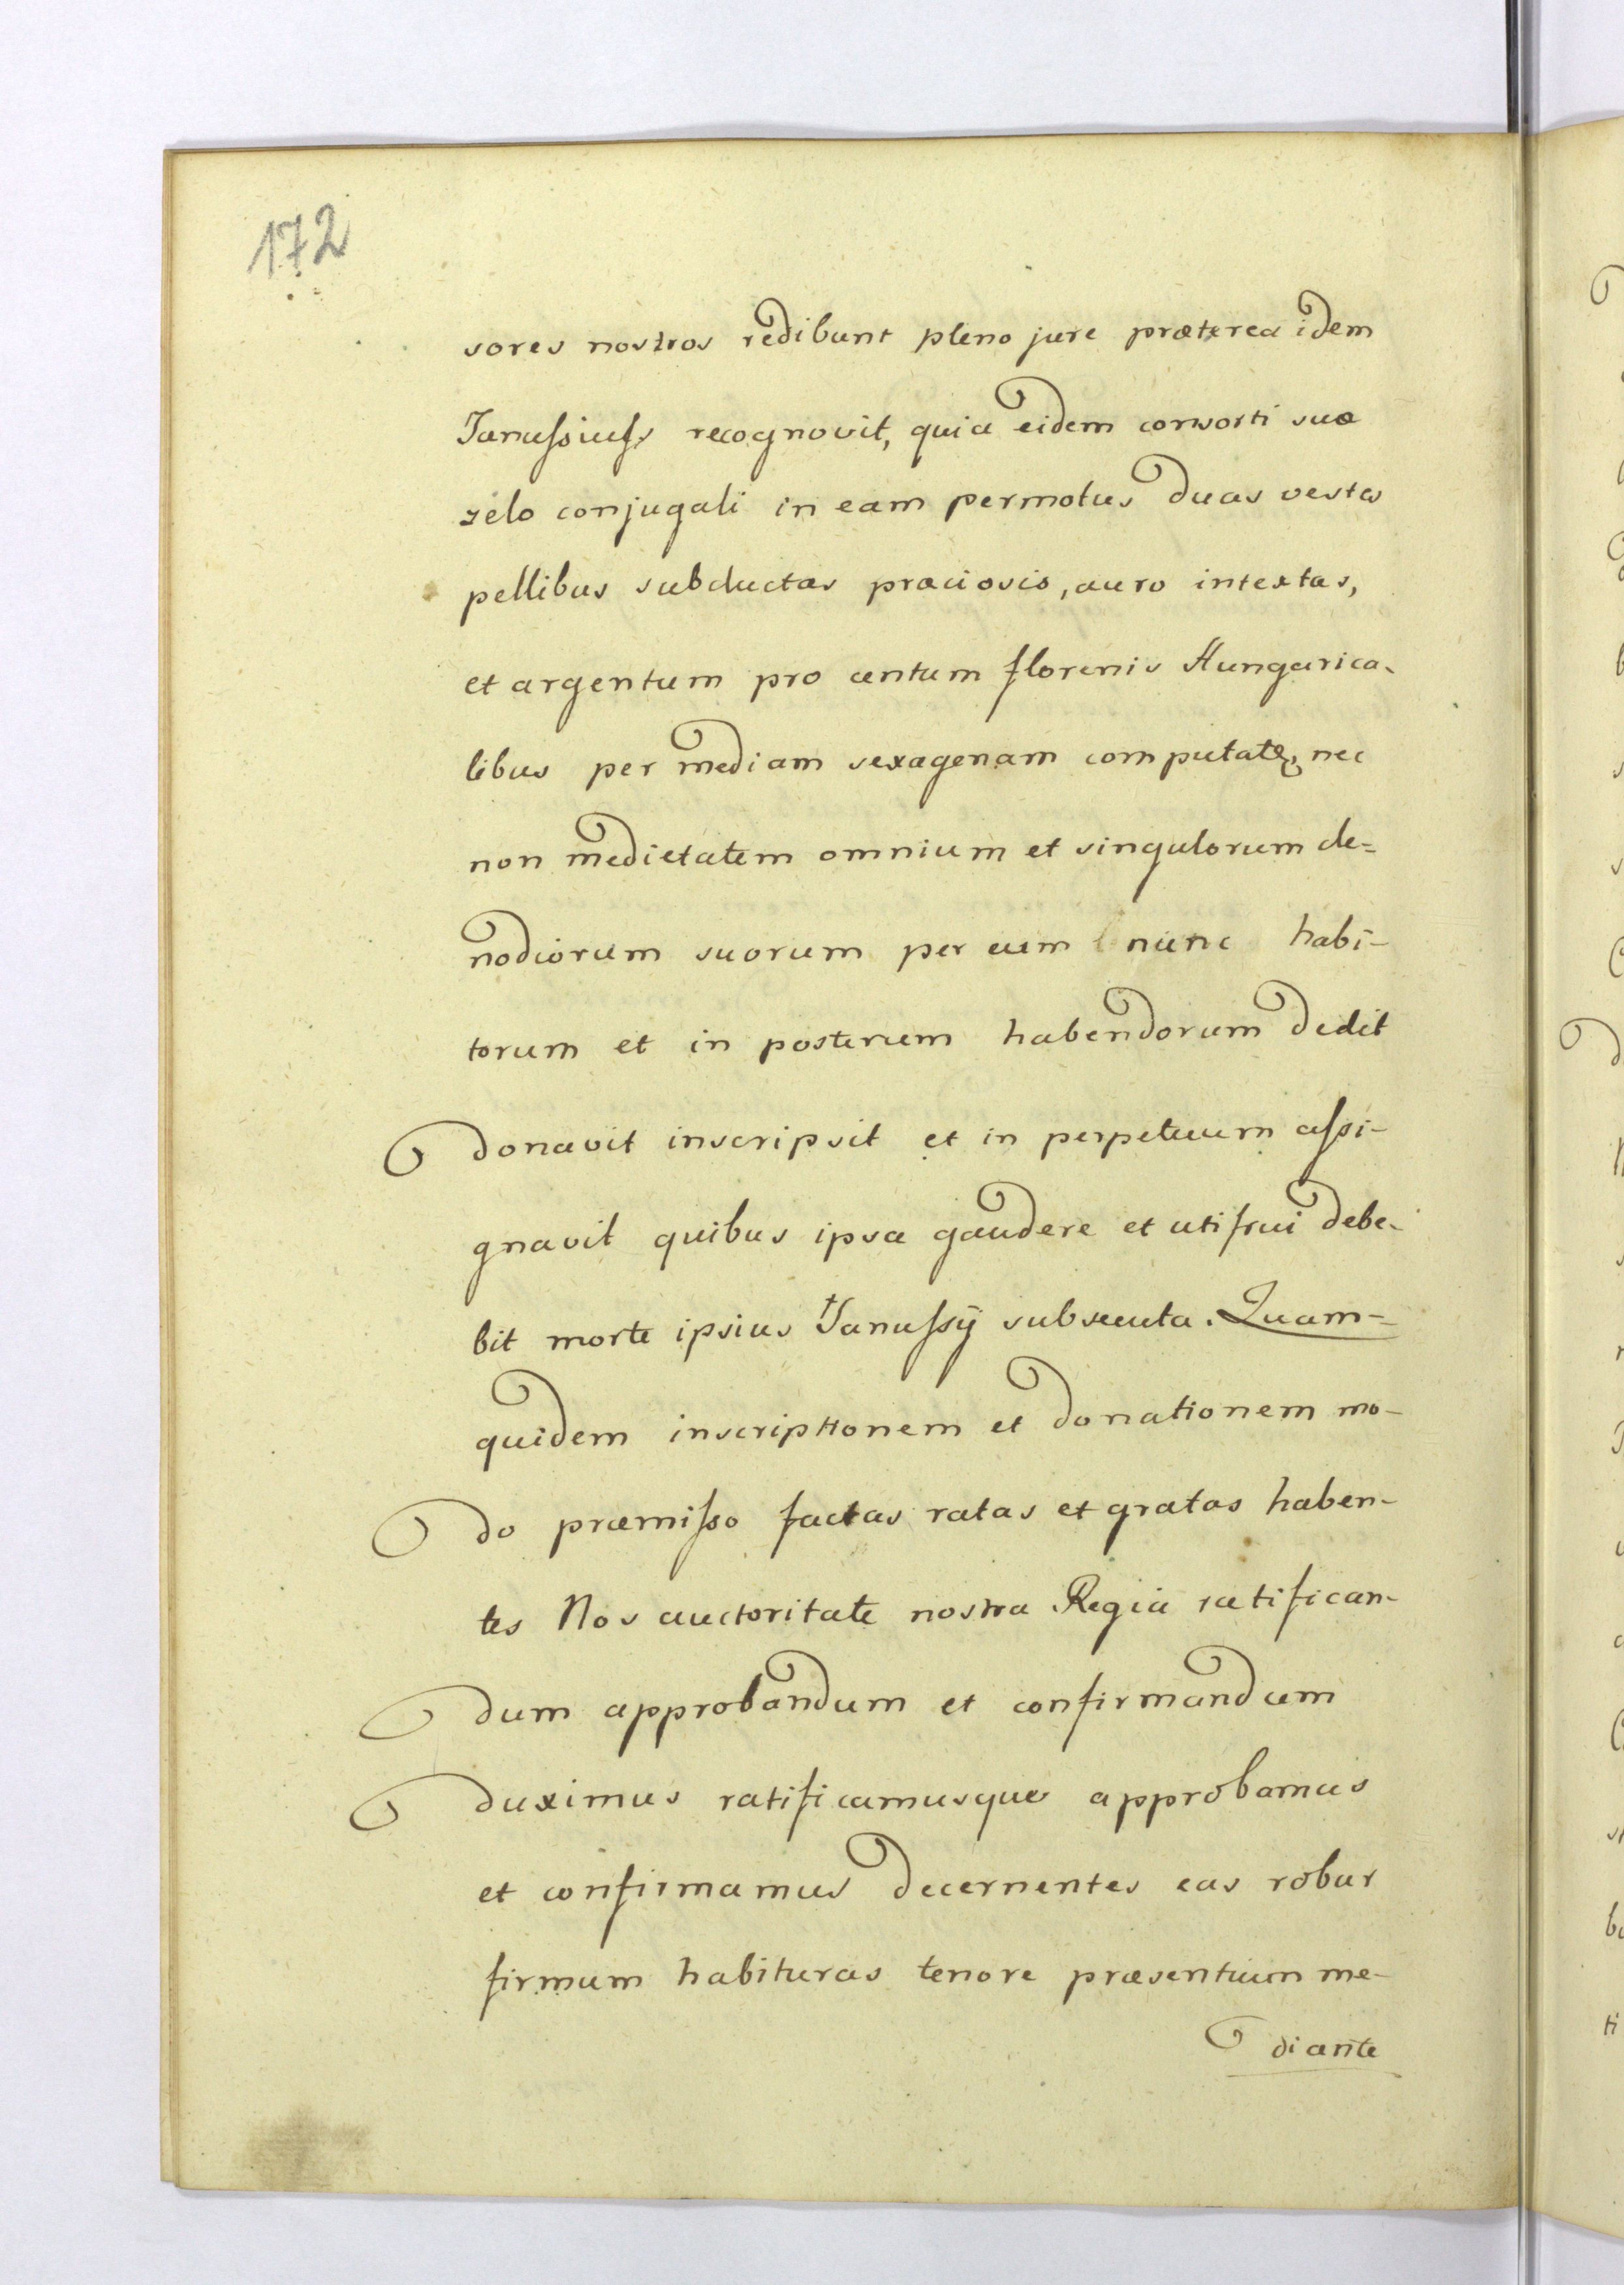 172
sores nostros redibunt pleno jure præterea idem
Januſsiuſs recognovit, quia eidem consorti suæ
zelo conjugali in eam permotus duas vestes
pellibus subductas præciosis, auro intextas,
et argentum pro centum florenis Hungarica-
libus per mediam sexagenam computatę, nec
non medietatem omnium et singulorum cle=
nodiorum suorum per eum nunc habi-
torum et in posterum habendorum dedit
donavit inscripsit et in perpetuum aſsi-
gnavit quibus ipsa gaudere et uti frui debe-
bit morte ipsius Januſsÿ subsecuta. Quam-
quidem inscriptionem et donationem mo-
do præmiſso factas ratas et gratas haben-
tes Nos auctoritate nostra Regia ratifican-
dum approbandum et confirmandum
duximus ratificamusque approbamus
et confirmamus decernentes eas robur
firmum habituras tenore præsentium me-
diante